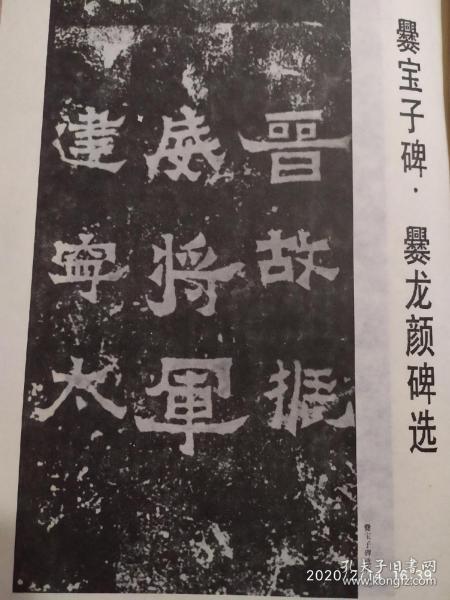 爨宝子碑·爨龙颜碑选
晋故振
威将軍
建寧太
爨宝子碑
孔夫子旧书网